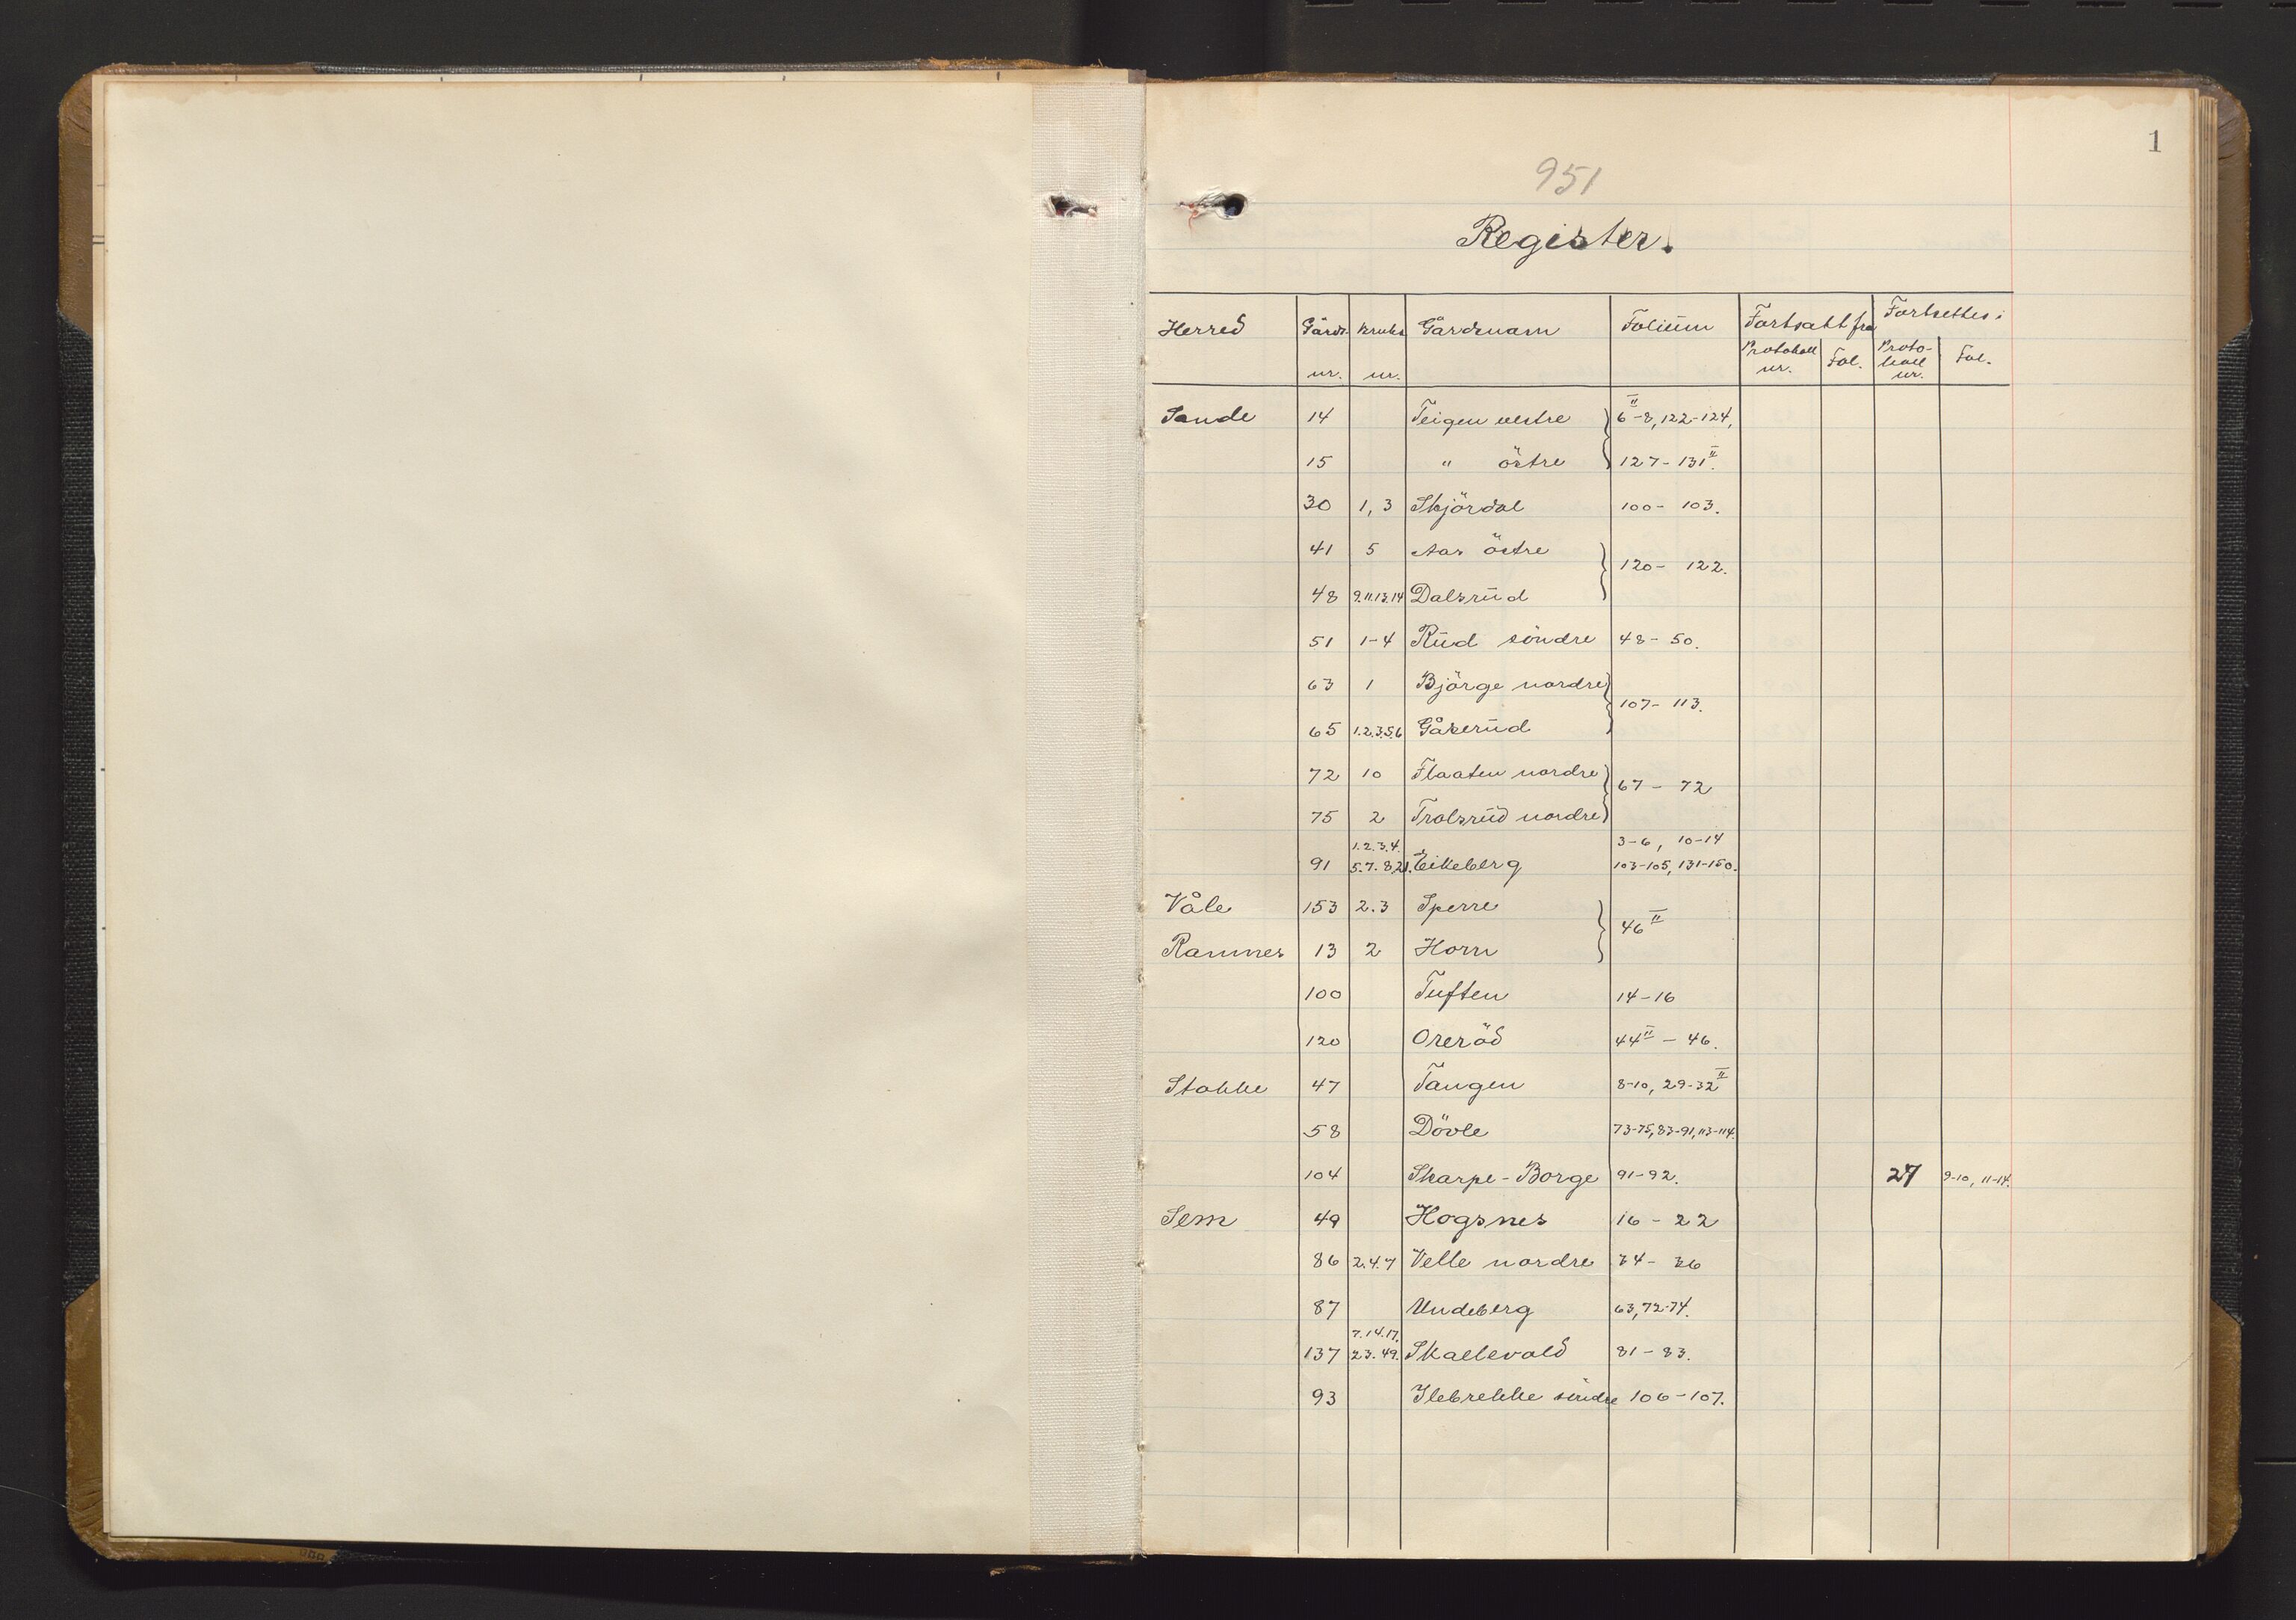 1
951
Register.
Herred Gårds nr. Bruks nr. Gårdsnavn Folium Fortsatt fra Fortsettes i
Protokoll nr. Fol. Protokoll nr. Fol.
Sande 14 Teigen vestre 6II-8, 122-124,
15 " östre 127-131II.
30 1, 3 Skjördal 100-103.
41 5 Aas östre
120-122.
48 9.11.13.14 Dalsrud
51 1-4 Rud söndre 48-50.
63 1 Björge nordre
107-113.
65 1.2.3.5.6 Gåserud
72 10 Flaaten nordre
67-72
75 2 Trolsrud nordre
1.2.3.4. 3-6, 10-14
91 5.7.8.21. Eikeberg 103-105, 131-150.
Våle 153 2.3 Sperre
46II
Ramnes 13 2 Horn
100 Tuften 14-16
120 Oreröd 44II-46.
Stokke 47 Tangen 8-10, 29-32II
58 Dövle 73-75, 83-91, 113-114.
104 Skarpe-Borge 91-92. 27 9-10, 11-14.
Sem 49 Hogsnes 16-22
86 2.4.7 Velle nordre 34-36
87 Undeberg 63, 72-74.
7.14.17.
137 23.49. Skallevold 81-83.
93 Ilebrekke söndre 106-107.